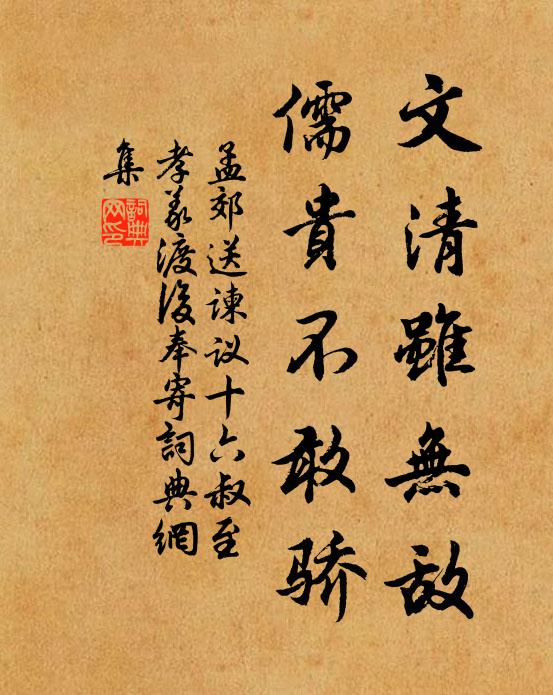 文清雖無敌
儒貴不敢骄
孟郊送諫议十六叔至
孝義渡後奉寄詞典網
集
詞典
网印